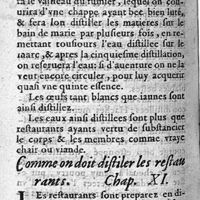 ra le vaisseau du fumier, lequel on cou-
urira d'vne chappe ayant bec bien luté,
& sera son distiller les matieres sur le
bain de marie par plusieurs fois, en re-
mettant tousiours l'eau distillee sur le
marc, & apres la cinquiesme distillation,
on reseruera l'eau: si d'auenture on ne la
veut encore circuler, pour luy acquerir
quasi vne quinte essence.
Les œufs tant blancs que iaunes sont
ainsi distillez.
Les eaux ainsi distillees sont plus que
restaurants ayants vertu de substanter
le corps & les membres comme vraye
chair ou viande.
Comme on doit distiler les restau
rants. Chap. XI.
LEs restaurants sont preparez en di-